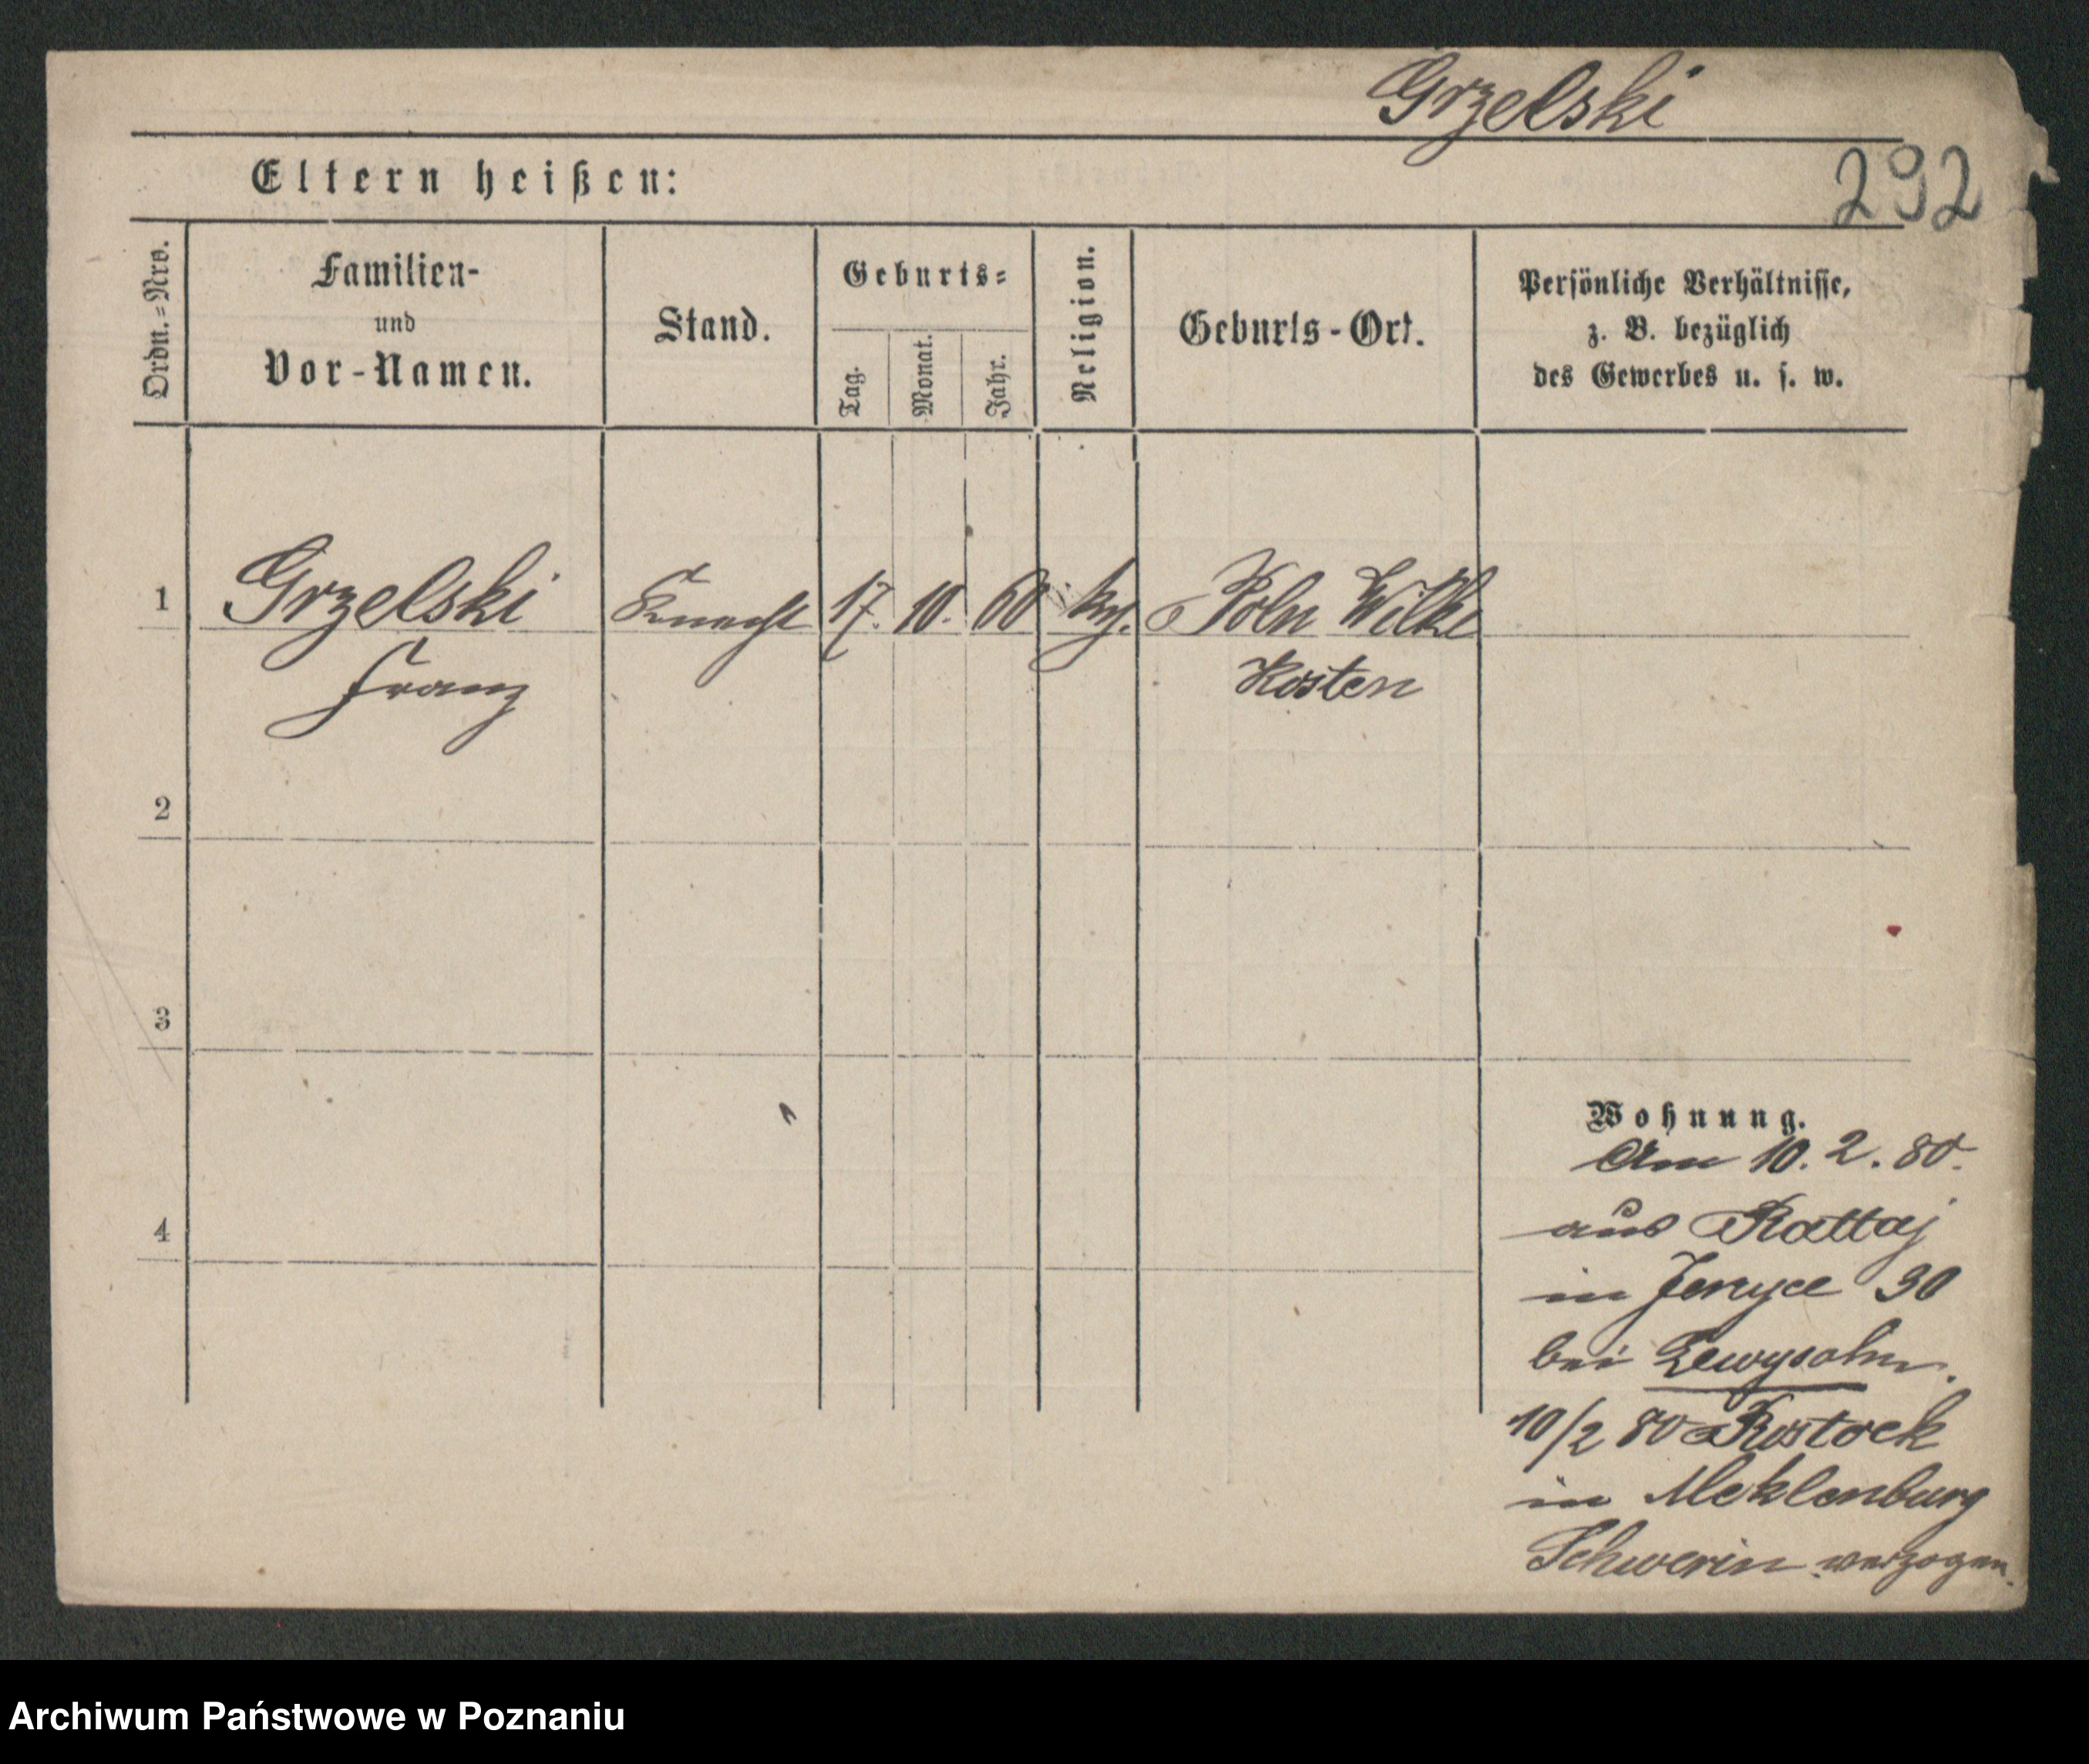 Grzelski
292
Eltern heißen:
Ordn.=Nro.
Familien-
und
Vor-Namen.
Stand.
Geburts=
Tag.
Monat.
Jahr.
Religion.
Geburts-Ort.
Persönliche Verhältnisse,
z. B. bezüglich
des Gewerbes u. s. w.
1 Grzelski Knecht 17. 10. 60 Poln Wilke
Franz Kosten
2
3
4
Wohnung.
Am 10. 2. 80.
aus Rattaj
in Jerzyce 30
bei Lewysohn.
10/2 80 Rostock
in Meklenburg
Schwerin verzogen.
Archiwum Państwowe w Poznaniu